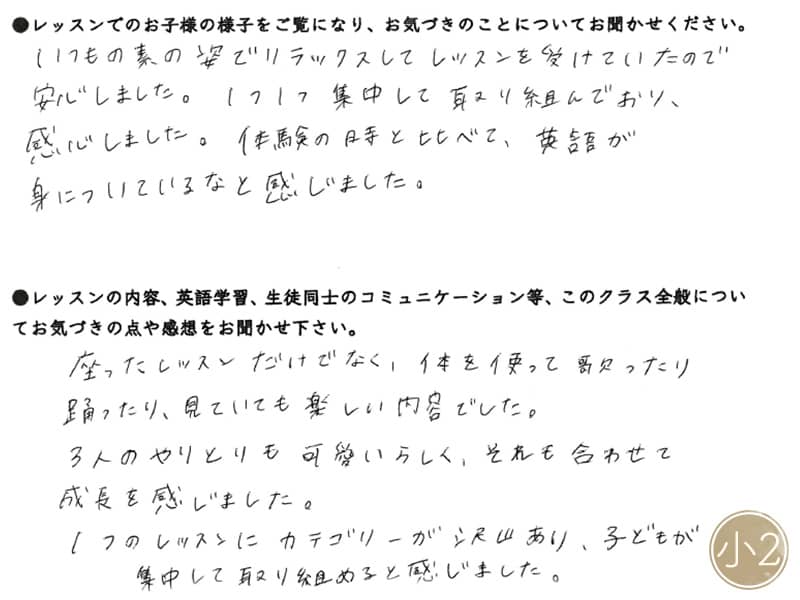 ●レッスンでのお子様の様子をご覧になり、お気づきのことについてお聞かせください。
いつもの素の姿でリラックスしてレッスンを受けていたので
安心しました。1つ1つ集中して取り組んでおり、
感心しました。体験の時と比べて、英語が
身についているなと感じました。
●レッスンの内容、英語学習、生徒同士のコミュニケーション等、このクラス全般につい
てお気づきの点や感想をお聞かせ下さい。
座ったレッスンだけでなく、体を使って歌ったり
踊ったり、見ていても楽しい内容でした。
3人のやりとりも可愛いらしく、それも合わせて
成長を感じました。
1つのレッスンにカテゴリーが沢山あり、子どもが
集中して取り組めると感じました。
小2